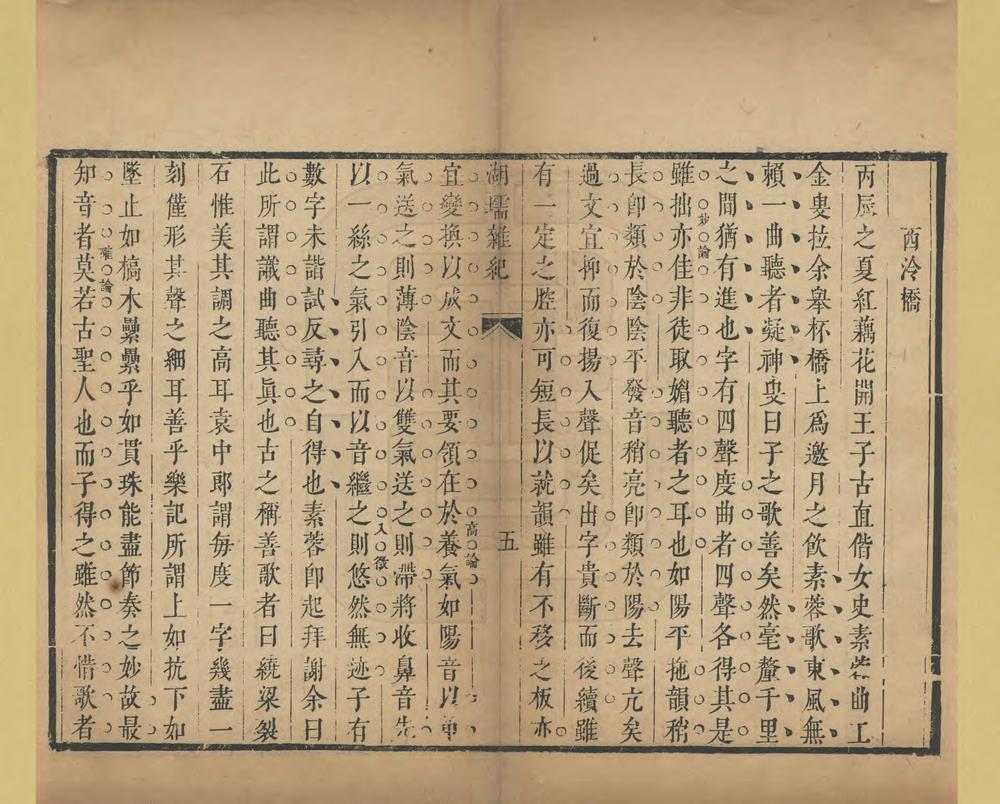 西泠橋
丙辰之夏紅藕花開王子古直偕女史素蓉曲工
金叟拉余舉杯橋上為邀月之飲素蓉歌東風無
賴一曲聽者凝神叟曰子之歌善矣然毫釐千里
之間猶有進也字有四聲度曲者四聲各得其是
雖拙亦佳非徒取媚聽者之耳也如陽平拖韻稍
妙論
長卽類於陰陰平發音稍亮卽類於陽去聲亢矣
過文宜抑而復揚入聲促矣出字貴斷而後續雖
有一定之腔亦可短長以就韻雖有不移之板亦
湖壖雜紀
五
宜變換以成文而其要領在於養氣如陽音以單
高論
氣送之則薄陰音以雙氣送之則滯將收鼻音先
以一絲之氣引入而以音繼之則悠然無迹子有
入微
數字未諧試反尋之自得也素蓉卽起拜謝余曰
此所謂識曲聽其眞也古之稱善歌者曰繞梁裂
石惟美其調之高耳袁中郎謂每度一字幾盡一
刻僅形其聲之細耳善乎樂記所謂上如抗下如
墜止如槁木纍纍乎如貫珠能盡節奏之妙故最
確論
知音者莫若古聖人也而子得之雖然不惜歌者